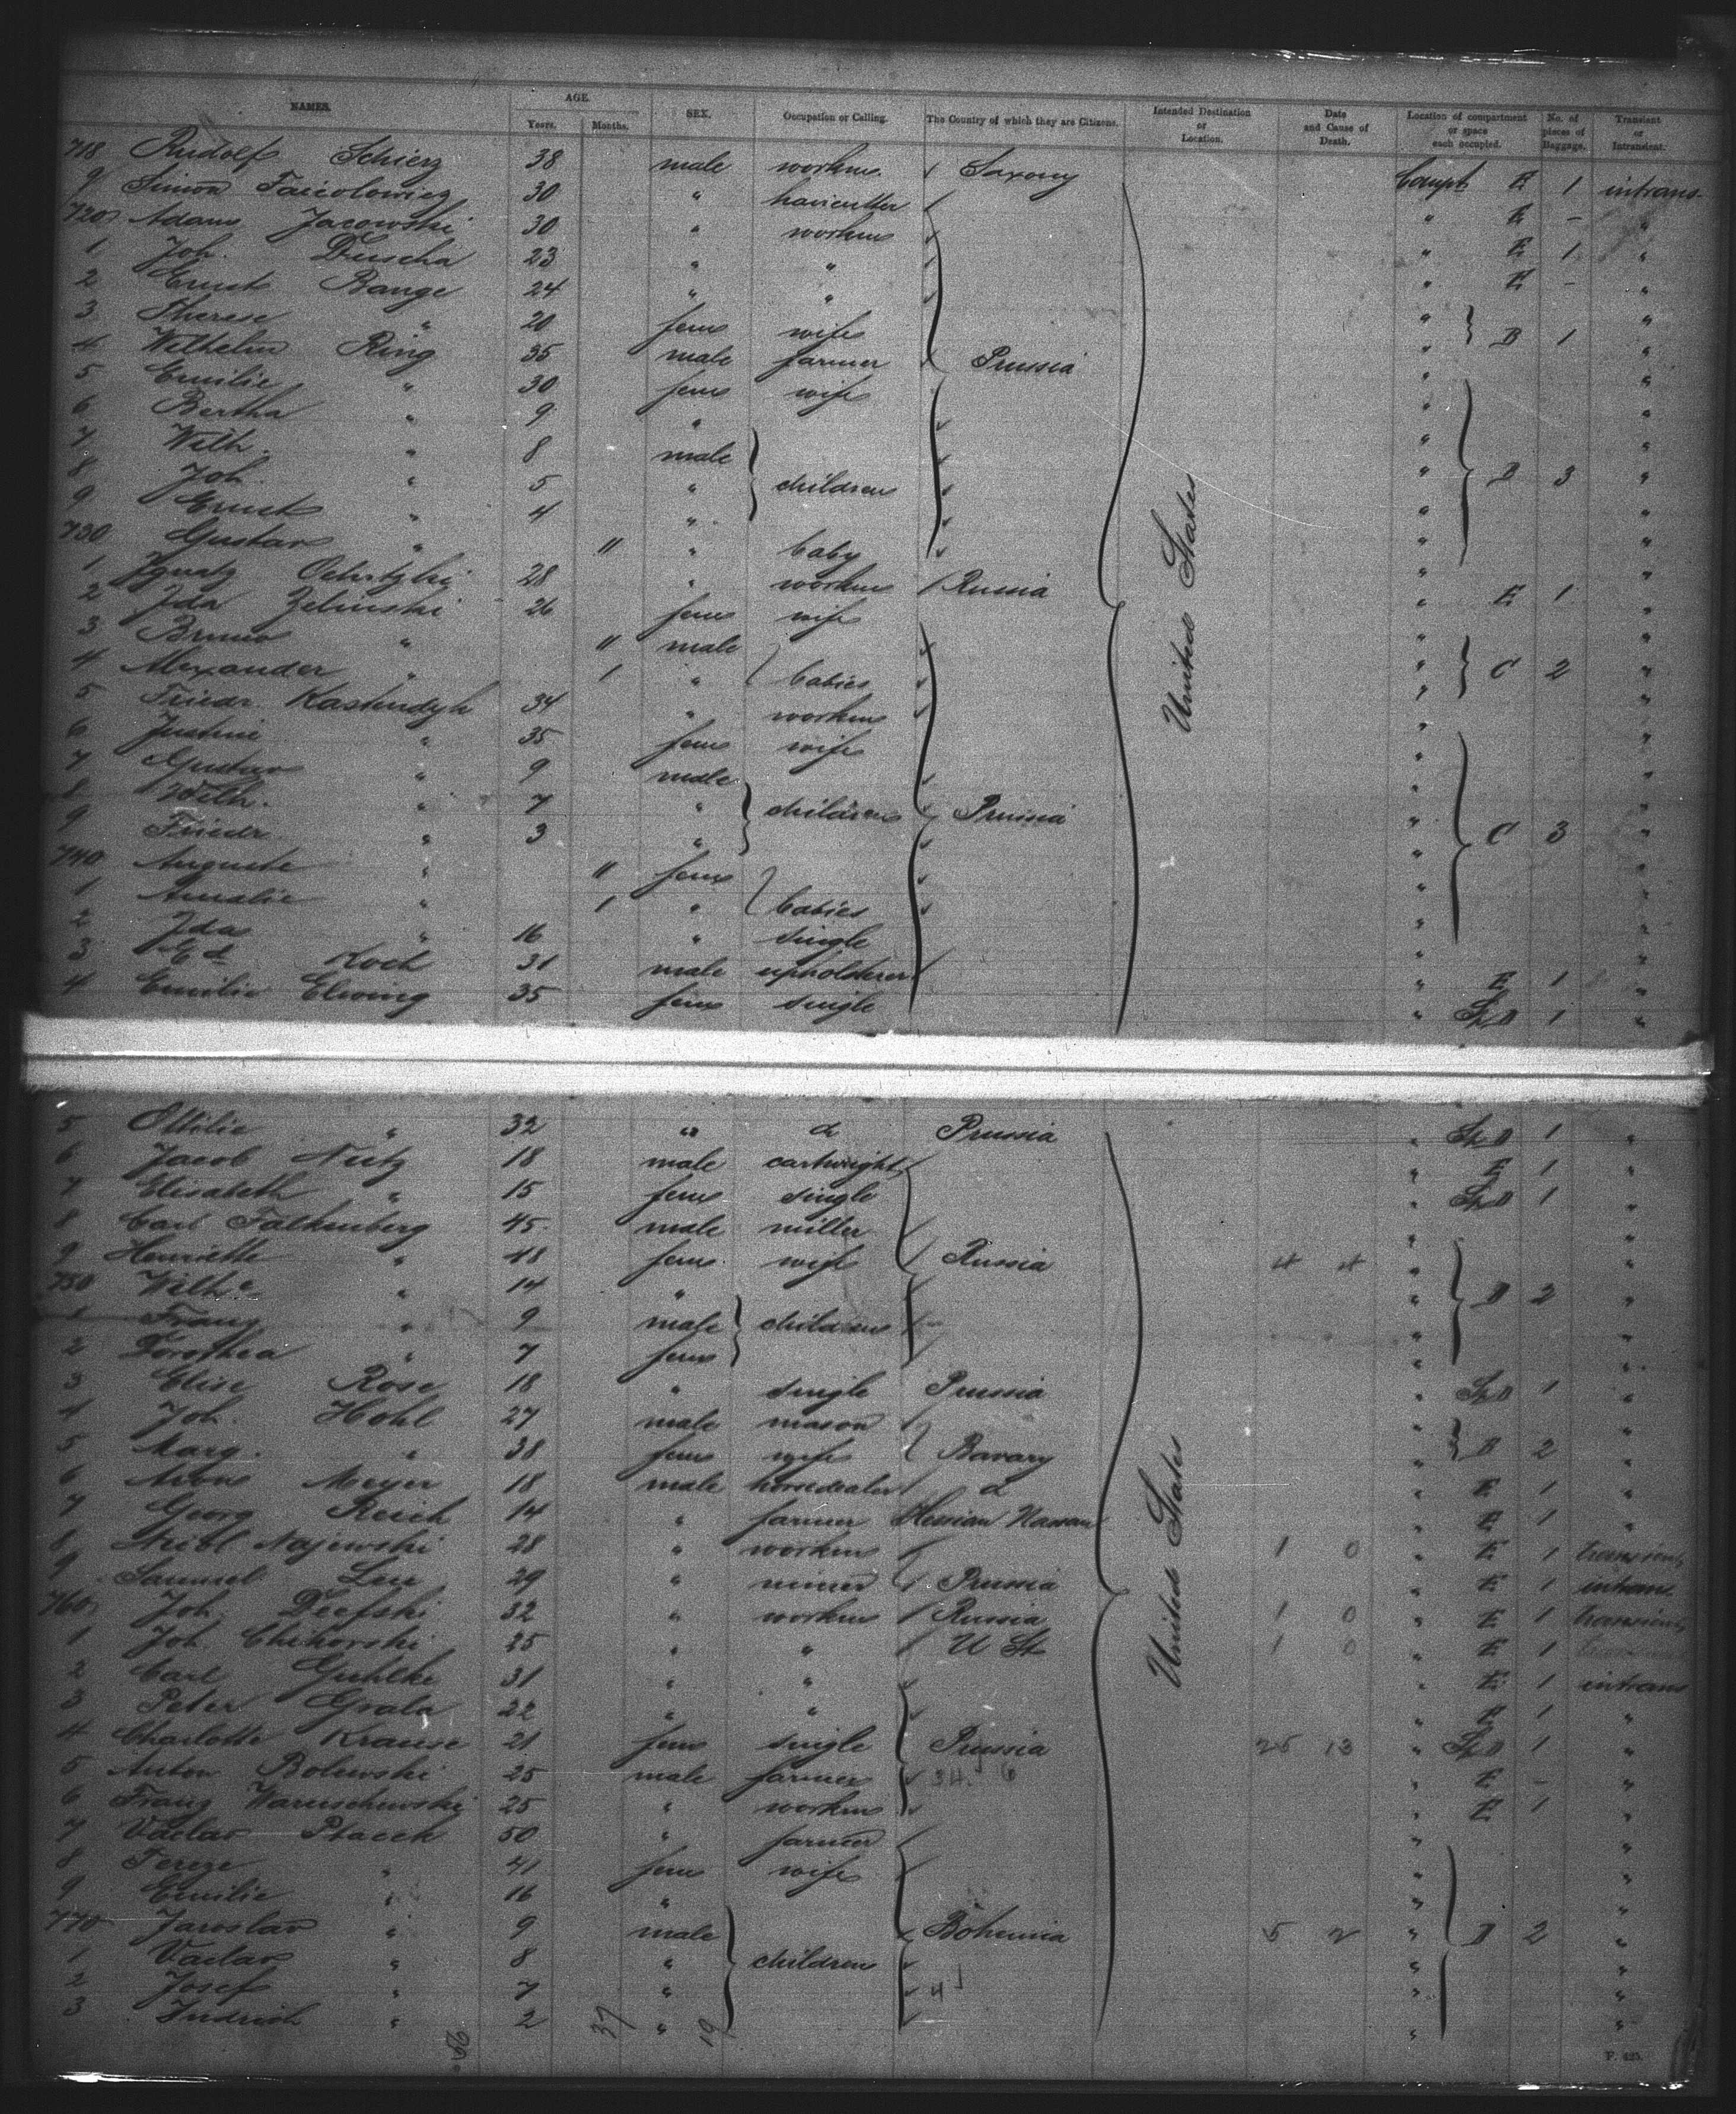 NAMES. AGE. Years. Months. SEX. Occupation or Calling. The Country of which they are Citizens. Intended Destination or Location. Date and Cause of Death. Location of compartment or space each occupied. No. of pieces of Baggage. Transient or Intransient.
718 Rudolf Schierz 38 male workm. Saxony Compt E 1 intrans.
9 Simon 30 " " E - "
720 Adam Jacowski 30 " workm " E 1 "
1 Joh. Duscha 23 " " " E - "
2 Ernst Bange 24 " " " "
3 Therese " 20 fem wife " B 1 "
4 Wilhelm Ring 35 male farmer Prussia " "
5 Emilie " 30 fem wife " "
6 Bertha " 9 " " "
7 Wilh. " 8 male " "
8 Joh. " 5 " children " B 3 "
9 Ernst " 4 " " "
730 Gustav " 11 " baby " "
1 Ignatz 28 " workm Russia " E 1 "
2 Ida Zelinski 26 fem wife " "
3 Bruno " 11 male " C 2 "
4 Alexander " 1 " babies " "
5 Friedr. 34 " workm " "
6 Justine " 35 fem wife " "
7 Gustav " 9 male " "
8 Wilh. " 7 " children Prussia " "
9 Friedr. " 3 " " C 3 "
740 Auguste " 11 fem " "
1 Amalie " 1 " babies " "
2 Ida " 16 " single " "
3 Ed Koch 31 male upholsterer " E 1 "
4 Emilie Elwing 35 fem single " D 1 "
United States
5 Ottilie " 32 " d Prussia " D 1 "
6 Jacob 18 male cartwright " E 1 "
7 Elisabeth " 15 fem single " D 1 "
8 Carl Falkenberg 45 male miller " "
9 Henriette " 48 fem wife Russia 4 4 " "
750 Wilh.e " 14 " " D 2 "
1 Franz " 9 male children " "
2 Dorothea " 7 fem " "
3 Elise Rose 18 " single Prussia " D 1 "
4 Joh. Hohl 27 male mason " "
5 Marg. " 38 fem wife Bavary " B 2 "
6 Aron Meyer 18 male horsedealer d " E 1 "
7 Georg Reich 14 " farmer Hessian Nassau " E 1 "
8 Najewski 28 " workm 1 0 " E 1 transient
9 Samuel 29 " miner Prussia " E 1 intrans.
760 Joh. 32 " workm Russia 1 0 " E 1 transient
1 Joh. Chikorski 25 " " U St 1 0 " E 1
2 Carl Guhlke 31 " " " E 1 intrans
3 Peter Grala 22 " " " E 1 "
4 Charlotte Krause 21 fem single Prussia 25 13 " D 1 "
5 Anton Bolewski 25 male farmer 34. 6 " E - "
6 Franz 25 " workm " E 1 "
7 Vaclav Ptacek 50 " farmer " "
8 Tereze " 41 fem wife " "
9 Emilie " 16 " " "
770 Jaroslav " 9 male Bohemia 5 2 " D 2 "
1 Vaclav " 8 " children " "
2 Josef " 7 " 4 " "
3 Indrich " 2 " " "
United States
56 37 19
F. 425.